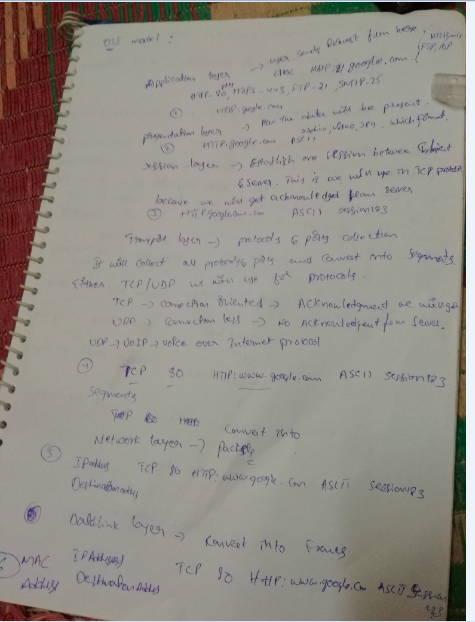 OSI model :
Application layer → user sends Request from browser
like HTTP://google.com
FTP, TCP
HTTP-80, HTTPS-443, FTP-21, SMTP-25
① web.google.com
presentation layer → How the data will be present.
audio, video, JPG. which format.
② HTTP.google.com ASCII
session layer → Establish one session between Client
& Server. This is we will use on TCP protocol
because we will get acknowledged from server
③ HTTP google.com ASCII session123
Transport layer → protocols & ports collection
it will collect all protocols, ports and convert into segments.
Either TCP/UDP we will use for protocols.
TCP → connection oriented → Acknowledgment we will get
UDP → Connection less → No Acknowledgement from server.
UDP → VOIP → Voice over Internet protocol
④ TCP 80 HTTP: www.google.com ASCII session123
Segments
Convert into
Network layer → packets
⑤ IP address TCP 80 HTTP: www.google.com ASCII session123
Destination address
Datalink layer → Convert into Frames
MAC IP Address TCP 80 HTTP: www.google.com ASCII Session
Address Destination Address 123